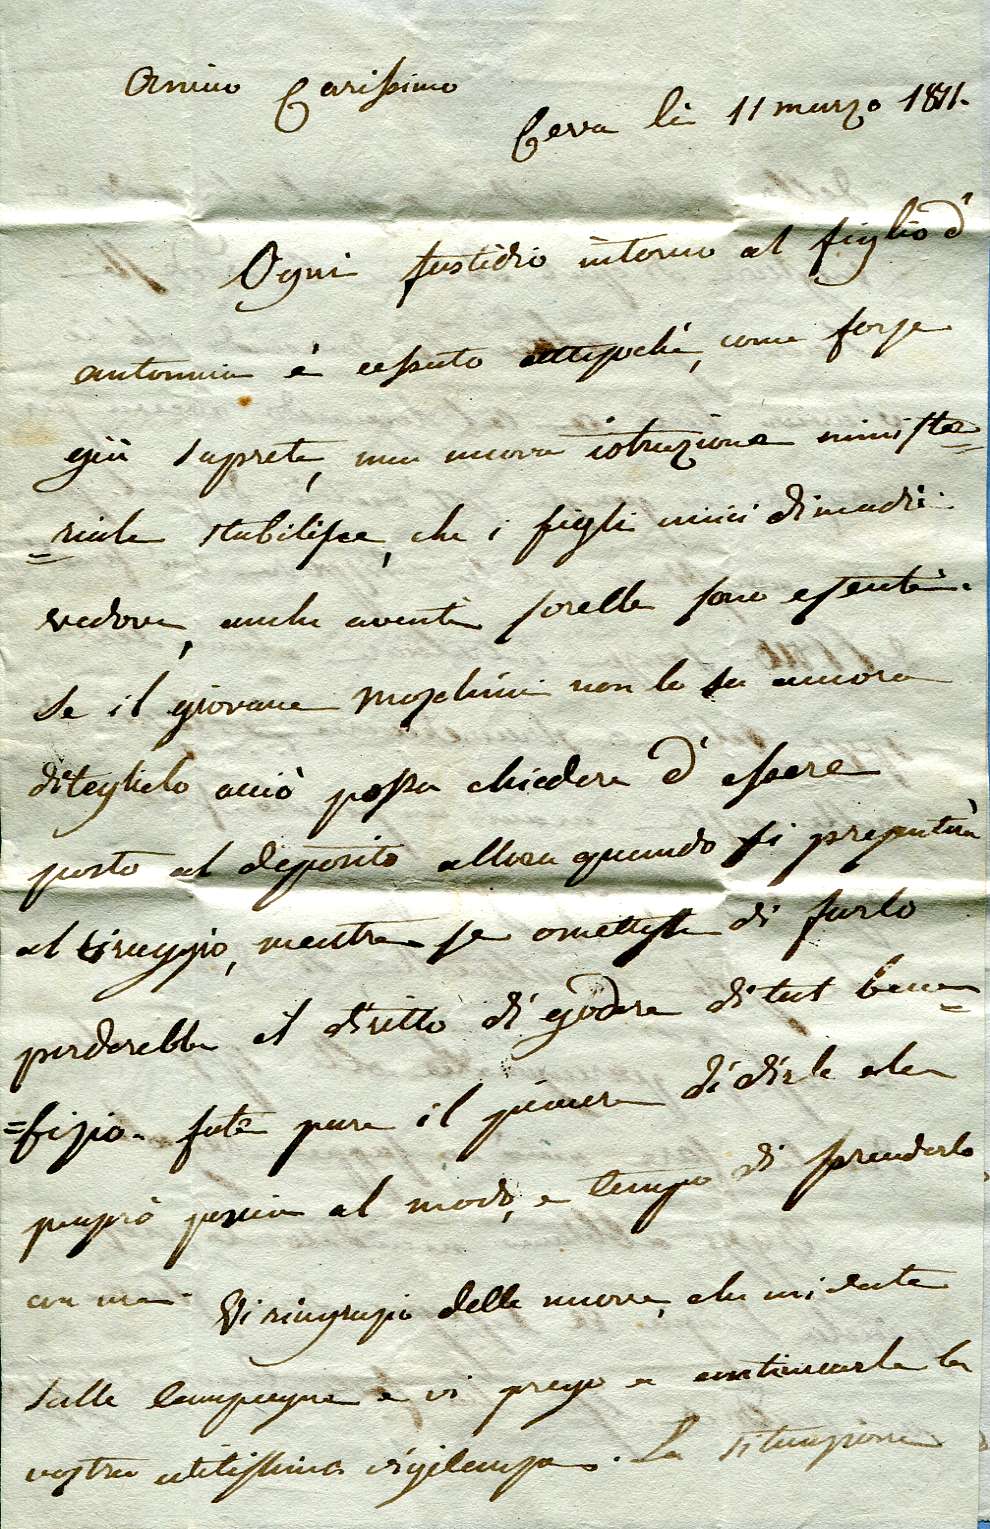 Amico Carissimo
Ceva li 11 marzo 1811.
Ogni fastidio intorno al figlio d'
antonia è cessato attesochè, come forse
già saprete, una nuova istruzione ministe=
=riale stabilisce, che i figli unici di madri
vedove, anche aventi sorelle sono esenti.
Se il giovane Moschini non lo sa ancora
diteglielo acciò possa chiedere d'essere
posto al deposito allora quando si presenterà
al tiraggio, mentre se omettesse di farlo
perderebbe il diritto di godere di tal bene=
=fizio. fate pure il piacere di dirle che
proprò al modo, e tempo di prenderlo
con me. Vi ringrazio delle nuove, che mi date
sulle Campagne e vi prego a continuarle la
vostra utilissima vigilanza. La situazione